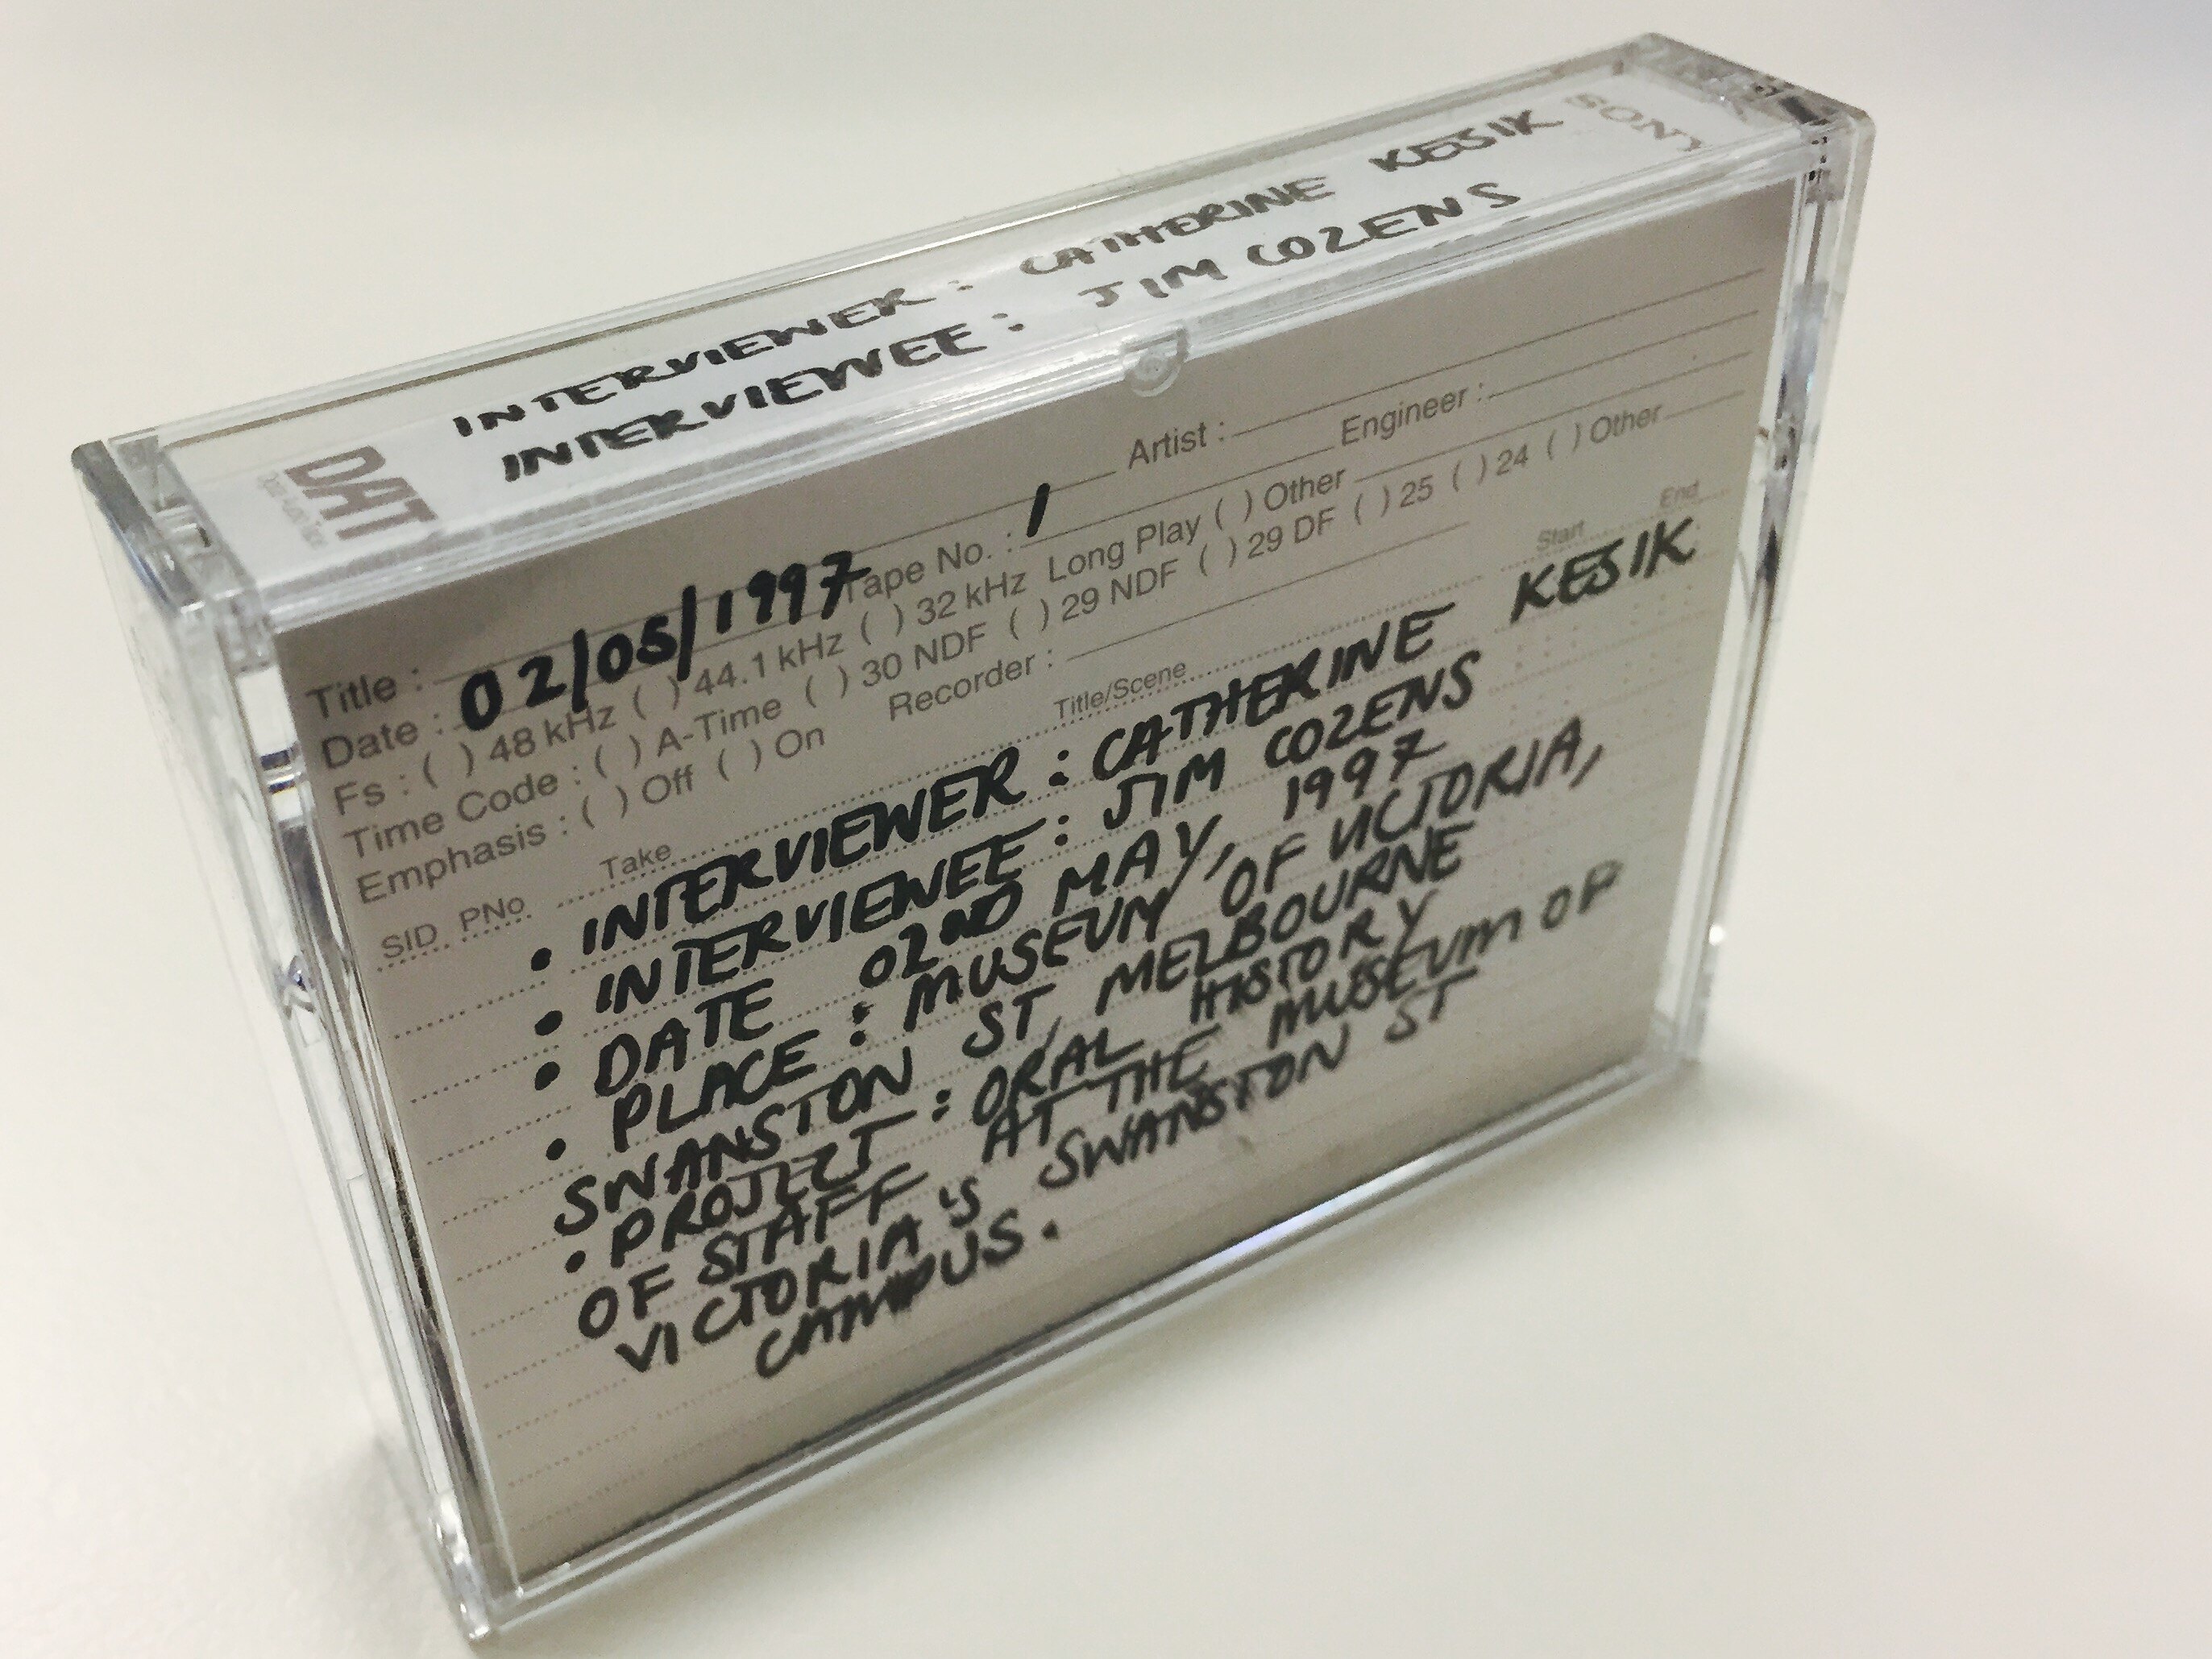 SONY
INTERVIEWER : CATHERINE KESIK
INTERVIEWEE : JIM COZENS
DAT
Title : Artist :
Date : 02/05/1997 Tape No. : 1 Engineer :
Fs : ( ) 48 kHz ( ) 44.1 kHz ( ) 32 kHz Long Play ( ) Other
Time Code : ( ) A-Time ( ) 30 NDF ( ) 29 NDF ( ) 29 DF ( ) 25 ( ) 24 ( ) Other
Emphasis : ( ) Off ( ) On Recorder :
SID PNo Take Title/Scene Start End
• INTERVIEWER : CATHERINE KESIK
• INTERVIEWEE : JIM COZENS
• DATE 02ND MAY, 1997
• PLACE : MUSEUM OF VICTORIA,
SWANSTON ST, MELBOURNE
• PROJECT : ORAL HISTORY
OF STAFF AT THE MUSEUM OF
VICTORIA'S SWANSTON ST
CAMPUS.